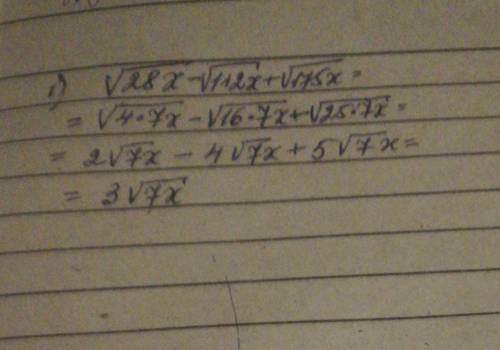 1) √28x - √112x + √175x =
= √4·7x - √16·7x + √25·7x =
= 2√7x - 4√7x + 5√7x =
= 3√7x